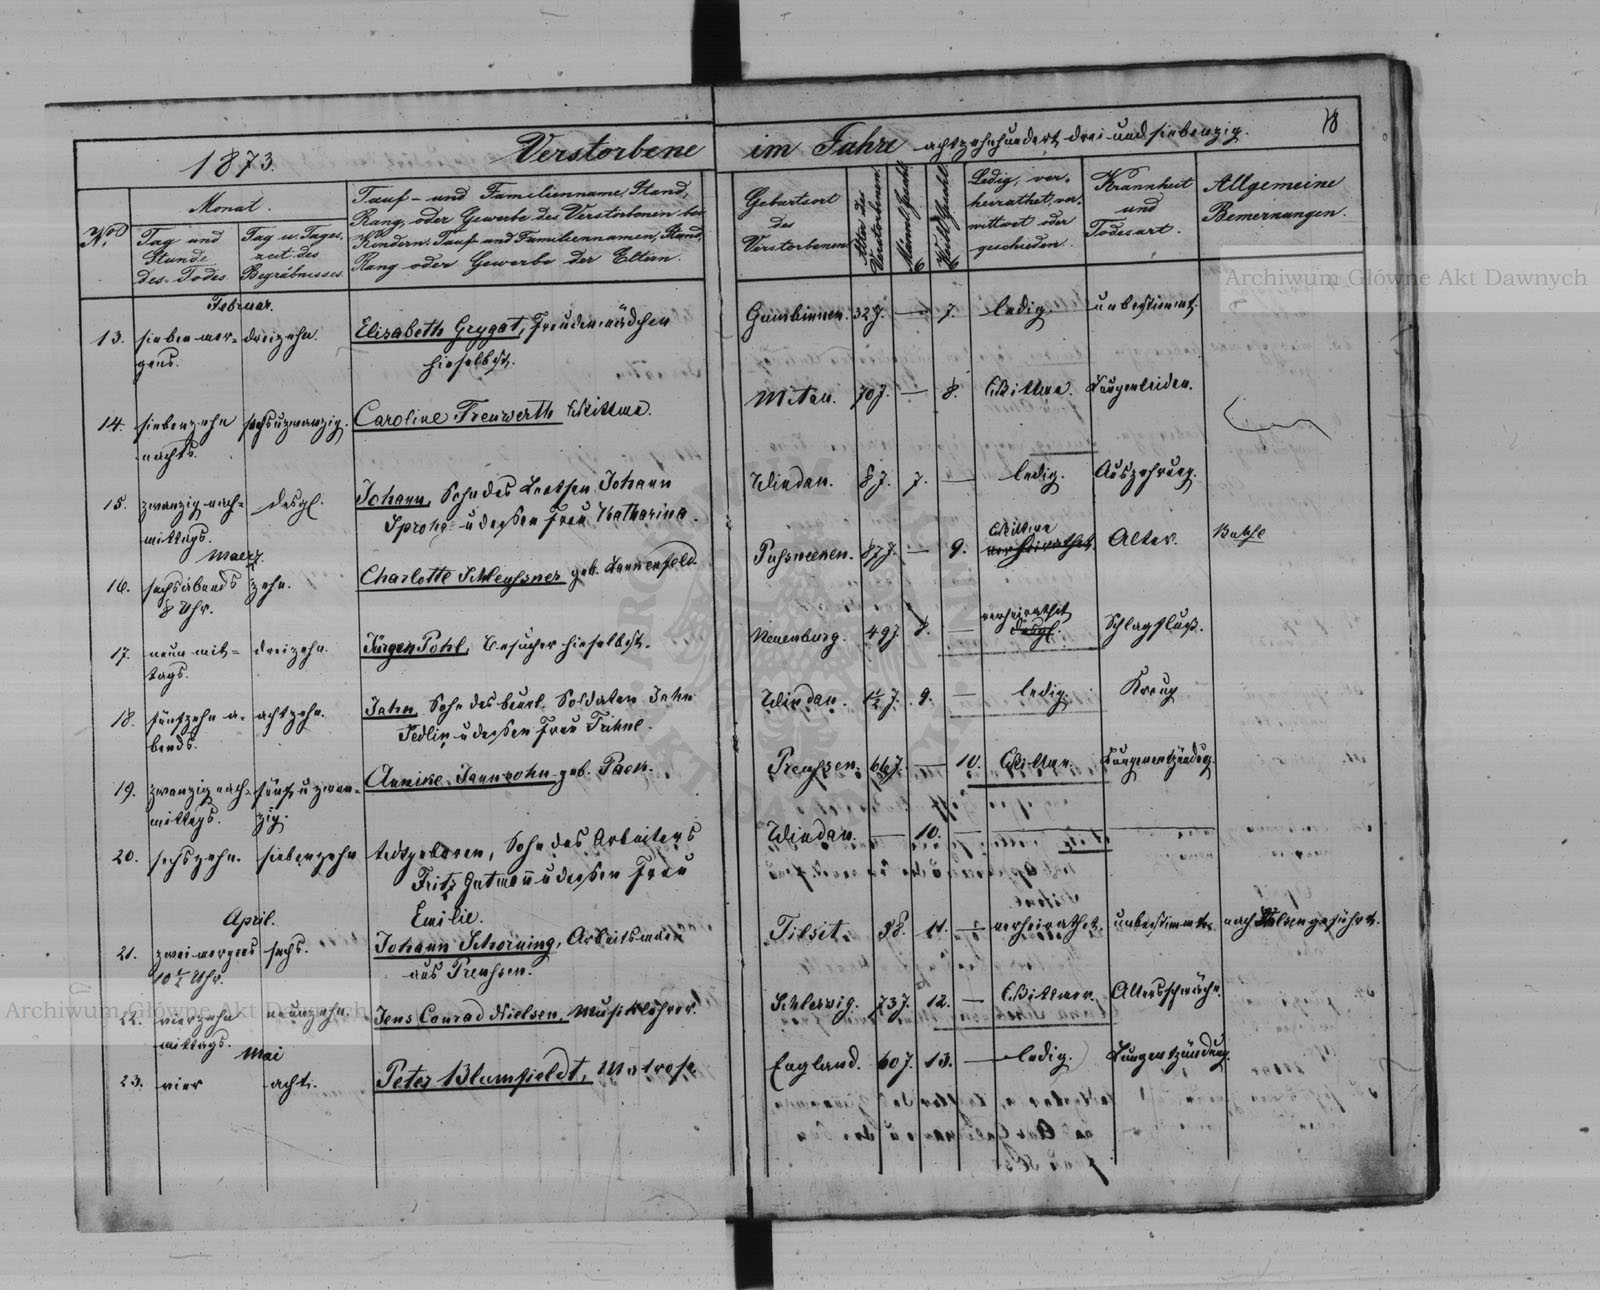 1873.
Verstorbene im Jahre achtzehnhundert drei und siebenzig.
18
No.
Monat.
Tag und Stunde des Todes.
Tag u. Tageszeit des Begräbnisses.
Tauf- und Familienname, Stand,
Rang, oder Gewerbe des Verstorbenen bei
Kindern: Tauf- und Familiennamen, Stand,
Rang oder Gewerbe der Eltern.
Geburtsort
des
Verstorbenen
Alter des Verstorbenen.
Männl. Geschl.
Weibl. Geschl.
Ledig, ver-
heirathet, ver-
wittwet oder
geschieden.
Krankheit
und
Todesart.
Allgemeine
Bemerkungen.
Februar.
13. sieben mor- dreizehn. Elisabeth Grygat, Freudenmädchen Gumbinnen. 32 J. — 7. ledig. unbestimmt.
gens. hieselbst.
14. siebenzehn sechsuzwanzig. Caroline Freuwerth Wittwe. Mitau. 70 J. — 8. Wittwe. Lungenleiden.
nachts.
15. zwanzig nach- desgl. Johann, Sohn des Lootsen Johann Windau. 8 J. 7. — ledig. Auszehrung.
mittags. Sprohg u dessen Frau Katharina.
Maerz.
16. sechs abends zehn. Charlotte Schleussner geb. Tannenfeld. Pussneeken. 87 J. — 9. Wittwe verheirathet. Alter.
8 Uhr.
17. neun mit- dreizehn. Jürgen Pohl, Besucher hieselbst. Neuenburg. 49 J. 8. — verheirathet desgl. Schlagfluß.
tags.
18. fünfzehn a- achtzehn. Jahn, Sohn des beurl. Soldaten Jahn Windau. 1½ J. 9. — ledig. Kroup
bends. Sedlin u dessen Frau Trihne.
19. zwanzig nach- fünf u zwan- Annike Jannsohn geb. Paek. Preussen. 66 J. — 10. Wittwe. Lungenentzündung.
mittags. zig.
20. sechszehn. siebenzehn todtgeboren, Sohn des Arbeiters Windau. — 10. —
Fritz Gutmann u dessen Frau
Emilie.
April.
21. zwei morgens sechs. Johann Schorning, Arbeitsmann Tilsit. 38. 11. — verheirathet. unbestimmt. nach geführt.
10½ Uhr. aus Preussen.
22. vierzehn neunzehn. Jens Conrad Nielsen, Musiklehrer. Schleswig. 73 J. 12. — Wittwer. Altersschwäche.
mittags.
Mai
23. vier acht. Peter Blumfieldt, Matrose. England. 60 J. 13. — ledig. Lungentzündung.
Archiwum Główne Akt Dawnych
Archiwum Główne Akt Dawnych